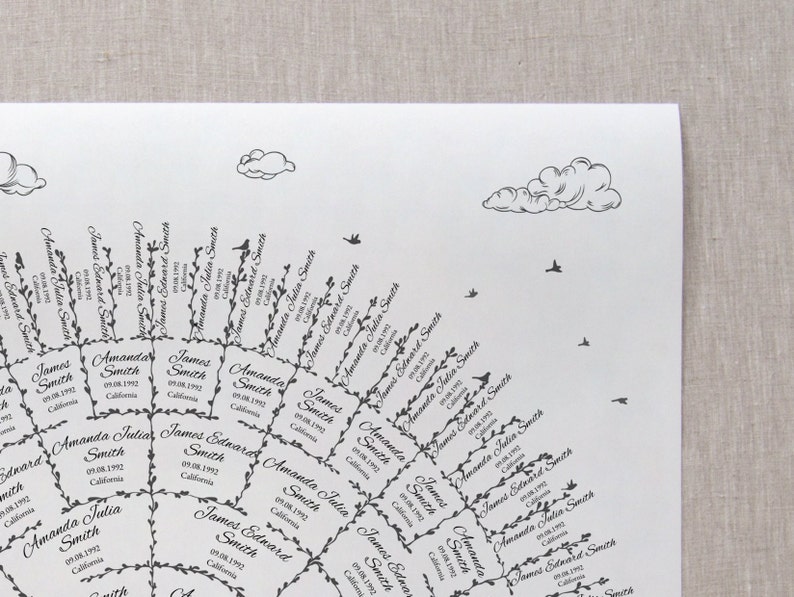 James Edward Smith
09.08.1992
California
Amanda Julia Smith
09.08.1992
California
James Edward Smith
09.08.1992
California
Amanda Julia Smith
James Edward Smith
09.08.1992
California
Amanda Julia Smith
09.08.1992
California
James Edward Smith
09.08.1992
California
Amanda Julia Smith
09.08.1992
California
James Edward Smith
09.08.1992
California
Amanda Julia Smith
09.08.1992
California
James Edward Smith
09.08.1992
California
Amanda Julia Smith
09.08.1992
California
James Edward Smith
09.08.1992
California
Amanda Julia Smith
09.08.1992
California
James Edward Smith
09.08.1992
California
Amanda Julia Smith
09.08.1992
California
James Edward Smith
09.08.1992
California
James
Smith
09.08.1992
California
Amanda
Smith
09.08.1992
California
James
Smith
09.08.1992
California
Amanda
Smith
09.08.1992
California
James
Smith
09.08.1992
California
Amanda
Smith
09.08.1992
California
James
Smith
09.08.1992
California
Amanda
Smith
09.08.1992
California
James Edward
Smith
09.08.1992
California
Amanda Julia
Smith
09.08.1992
California
James Edward
Smith
09.08.1992
California
Amanda Julia
Smith
09.08.1992
California
James Edward
Smith
09.08.1992
California
Amanda Julia
Smith
09.08.1992
California
James Edward
Smith
09.08.1992
California
Amanda Julia